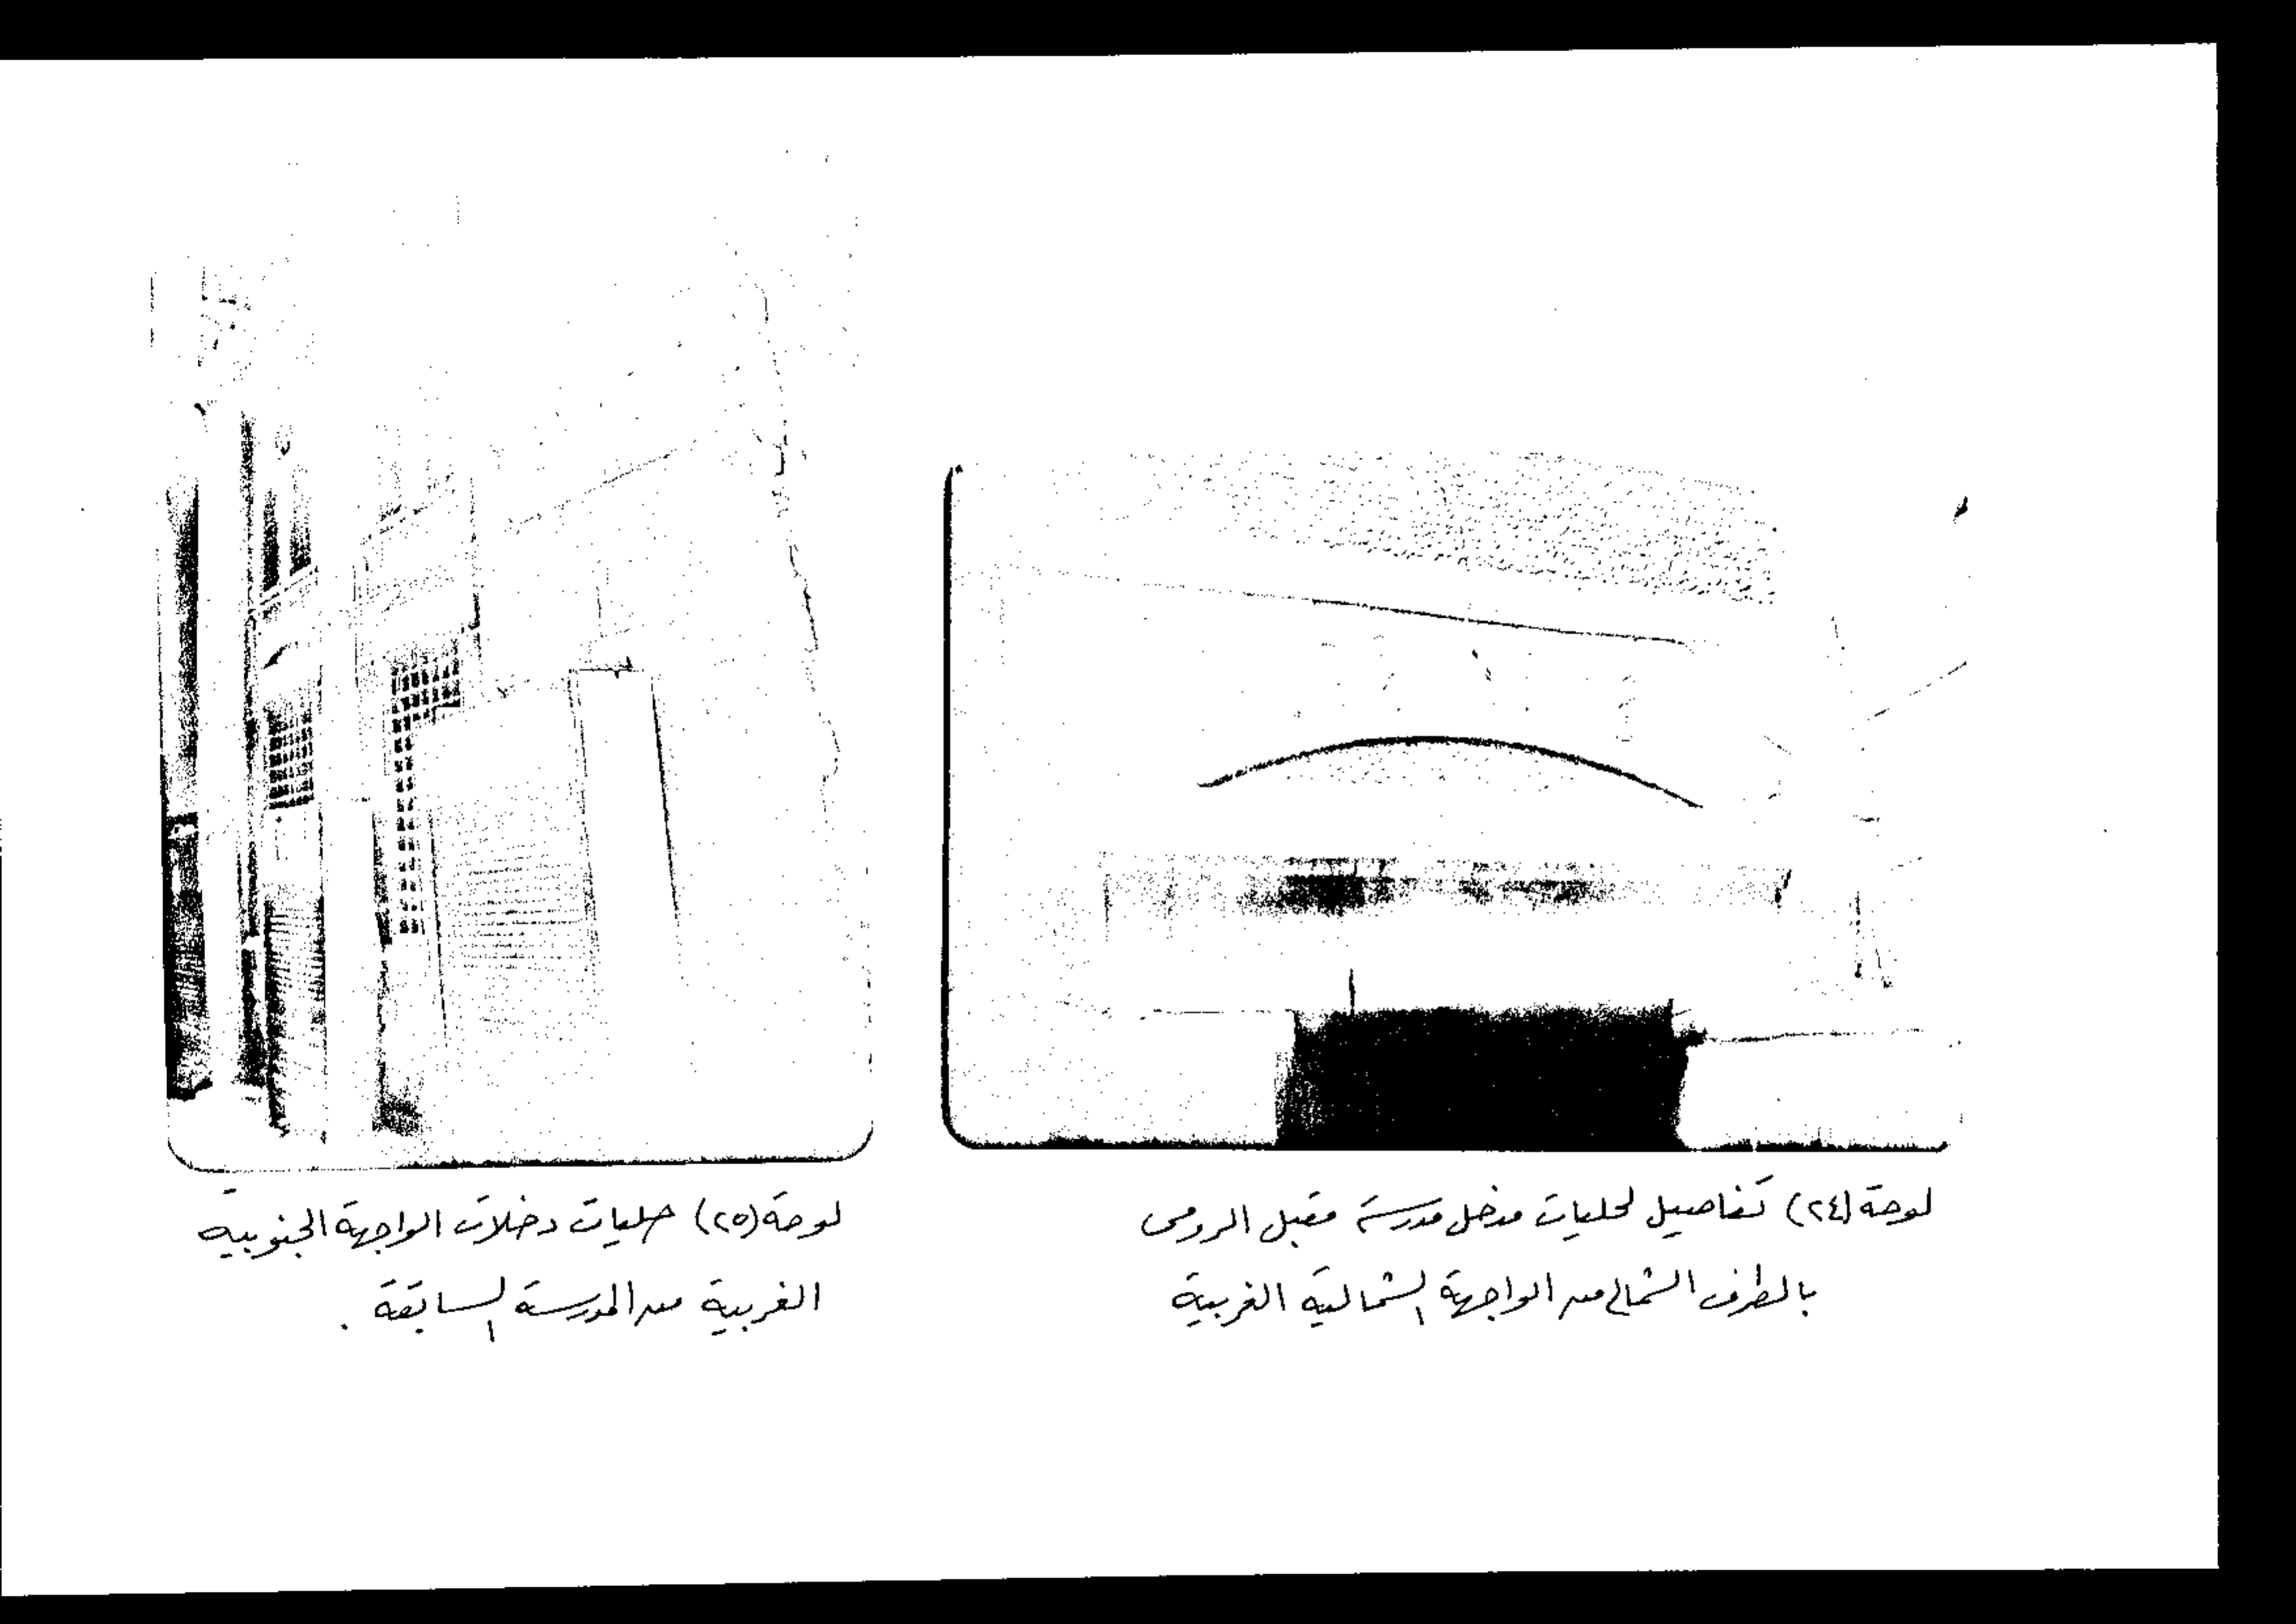 لوحة (٢٤) تفاصيل لحليات مدخل مدرسة مقبل الرومى
بالطرف الشمالى من الواجهة الشمالية الغربية
لوحة (٢٥) حليات دخلات الواجهة الجنوبية
الغربية من المدرسة السابقة .